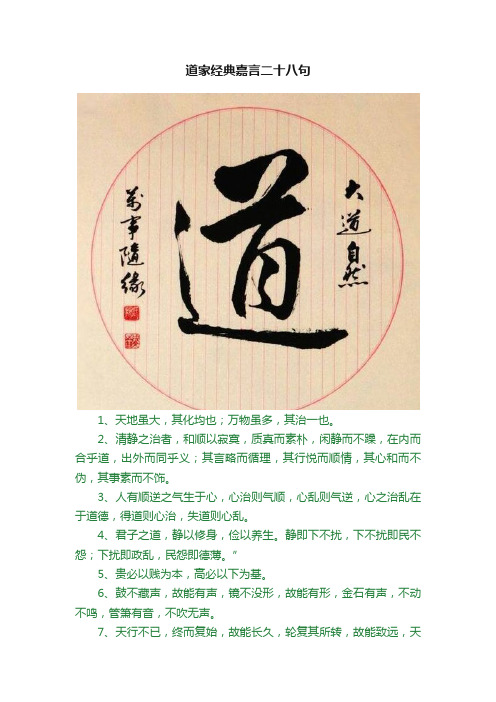 道家经典嘉言二十八句
大道自然
道
萬事隨緣
1、天地虽大，其化均也；万物虽多，其治一也。
2、清静之治者，和顺以寂寞，质真而素朴，闲静而不躁，在内而
合乎道，出外而同乎义；其言略而循理，其行悦而顺情，其心和而不
伪，其事素而不饰。
3、人有顺逆之气生于心，心治则气顺，心乱则气逆，心之治乱在
于道德，得道则心治，失道则心乱。
4、君子之道，静以修身，俭以养生。静即下不扰，下不扰即民不
怨；下扰即政乱，民怨即德薄。”
5、贵必以贱为本，高必以下为基。
6、鼓不藏声，故能有声，镜不没形，故能有形，金石有声，不动
不鸣，管箫有音，不吹无声。
7、天行不已，终而复始，故能长久，轮复其所转，故能致远，天